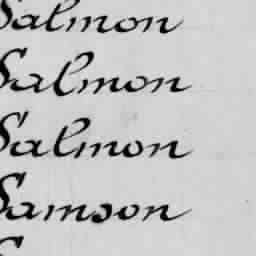 Salmon
Salmon
Salmon
Samson